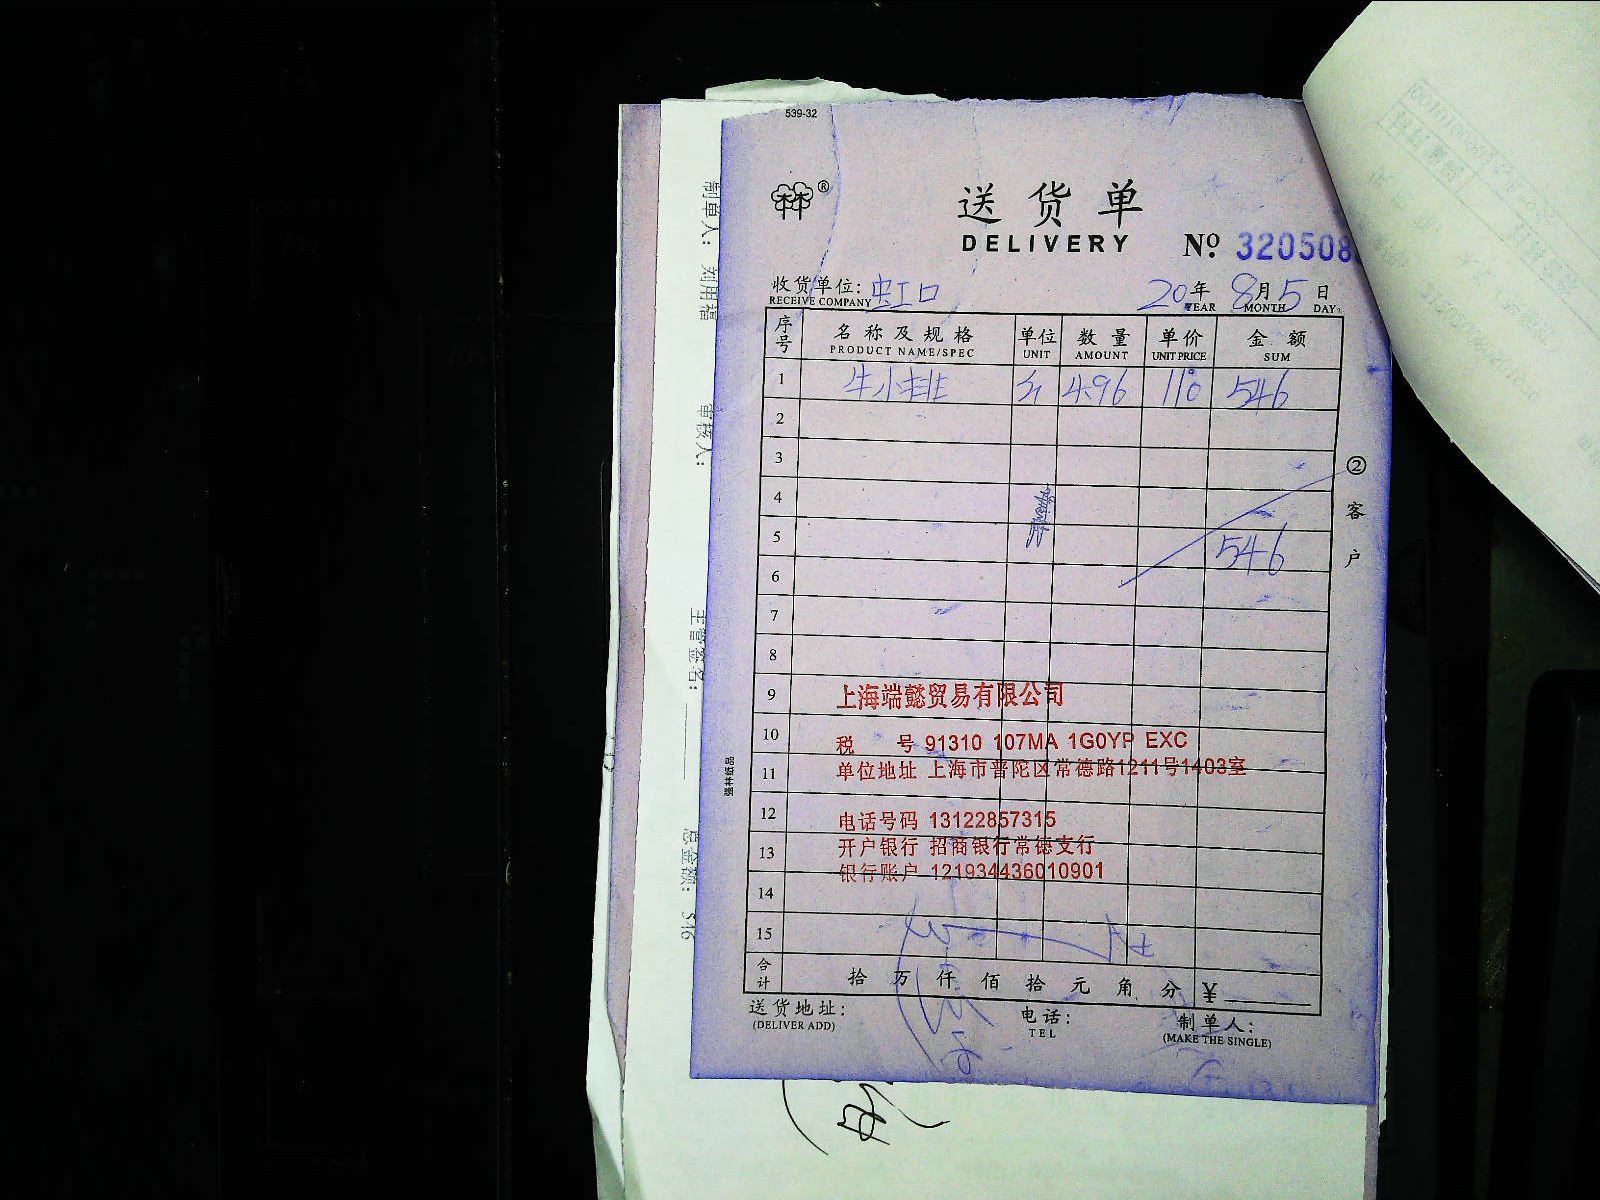 539-32
®
送货单
DELIVERY
Nº 320508
收货单位: 虹口 20年 8月 5日
RECEIVE COMPANY YEAR MONTH DAY
序号 名称及规格 单位 数量 单价 金额
PRODUCT NAME/SPEC UNIT AMOUNT UNIT PRICE SUM
1 牛小排 斤 4.96 110 546
2
3
4
5 546
6
7
8
9
10
11
12
13
14
15
② 客户
上海端懿贸易有限公司
税 号 91310 107MA 1G0YP EXC
单位地址 上海市普陀区常德路1211号1403室
电话号码 13122857315
开户银行 招商银行常德支行
银行账户 121934436010901
合计 拾 万 仟 佰 拾 元 角 分 ¥
送货地址: 电话: 制单人:
(DELIVER ADD) TEL (MAKE THE SINGLE)
强林纸品
制单人: 刘用福
审核人:
主管签名:
总金额: 546